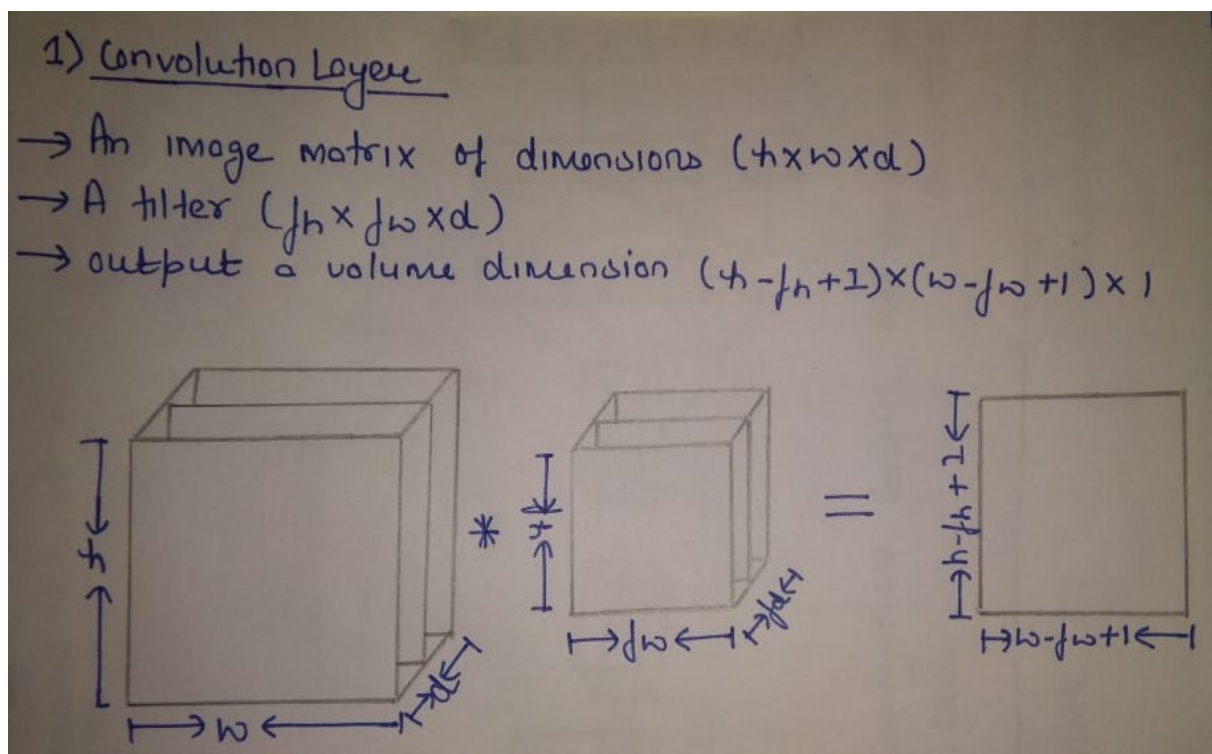 1) Convolution Layer
→ An image matrix of dimensions (h×w×d)
→ A filter (fh × fw ×d)
→ output a volume dimension (h-fh+1)×(w-fw+1)×1
h
w
d
*
fh
fw
fd
=
h-fh+1
w-fw+1